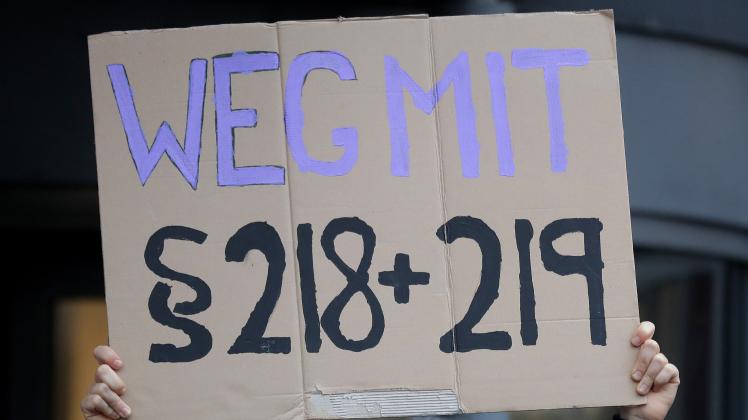 WEG MIT
§218+219